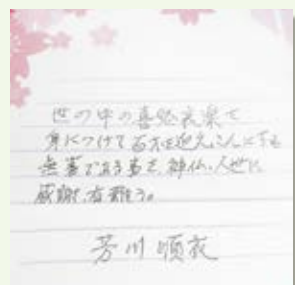 世の中の喜怒哀楽を
身につけて百才を迎えこんにちも
無事である事を神仏、人世に
感謝、有難う。
芳川順衣